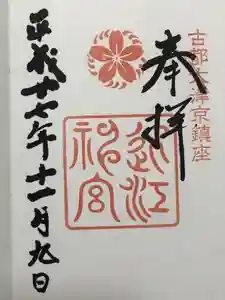 奉拝
古都大津京鎮座
近江神宮
平成廿七年十一月九日